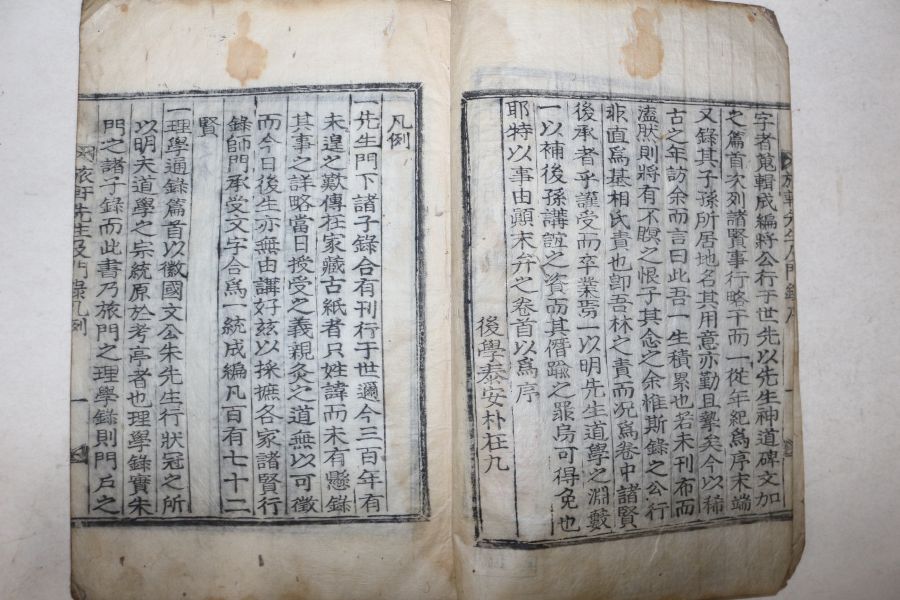 字者蒐輯成編將公行于世先以先生神道碑文加
之篇首次列諸賢事行略干而一從年紀爲序末端
又錄其子孫所居地名其用意亦勤且摯矣今以稀
古之年訪余而言曰此吾一生積累也若未刊布而
溘然則將有不瞑之恨子其念之余惟斯錄之公行
非直爲基相氏責也卽吾林之責而况爲卷中諸賢
後承者乎謹受而卒業焉一以明先生道學之淵藪
一以補後孫講誼之資而其僭踰之罪烏可得免也
耶特以事由顚末弁之卷首以爲序
後學泰安朴在九
凡例
一先生門下諸子錄合有刊行于世邇今三百年有
未遑之歎傳在家藏古紙者只姓諱而未有懸錄
其事之詳略當日授受之義親灸之道無以可徵
而今日後生亦無由講好玆以採摭各家諸賢行
錄師門承受文字合爲一統成編凡百有七十二
賢
一理學通錄篇首以徽國文公朱先生行狀冠之所
以明夫道學之宗統原於考亭者也理學錄實朱
門之諸子錄而此書乃旅門之理學錄則門戶之
旅軒先生及門錄凡例 一